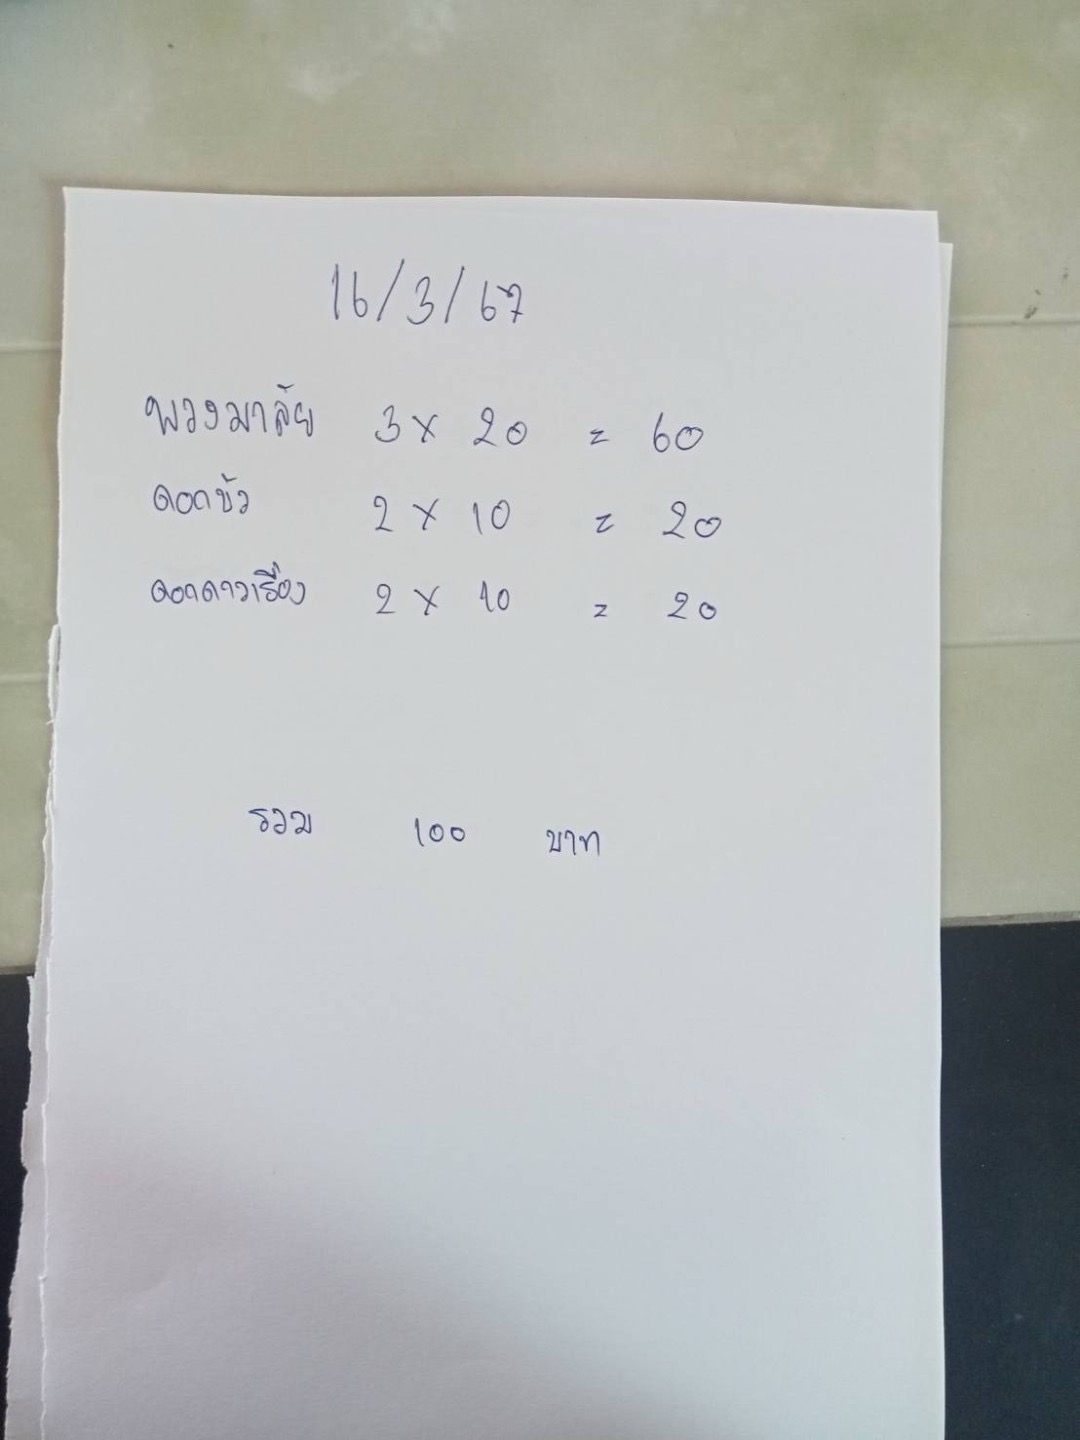 16/3/67
พวงมาลัย 3 x 20 = 60
ดอกบัว 2 x 10 = 20
ดอกดาวเรือง 2 x 10 = 20
รวม 100 บาท